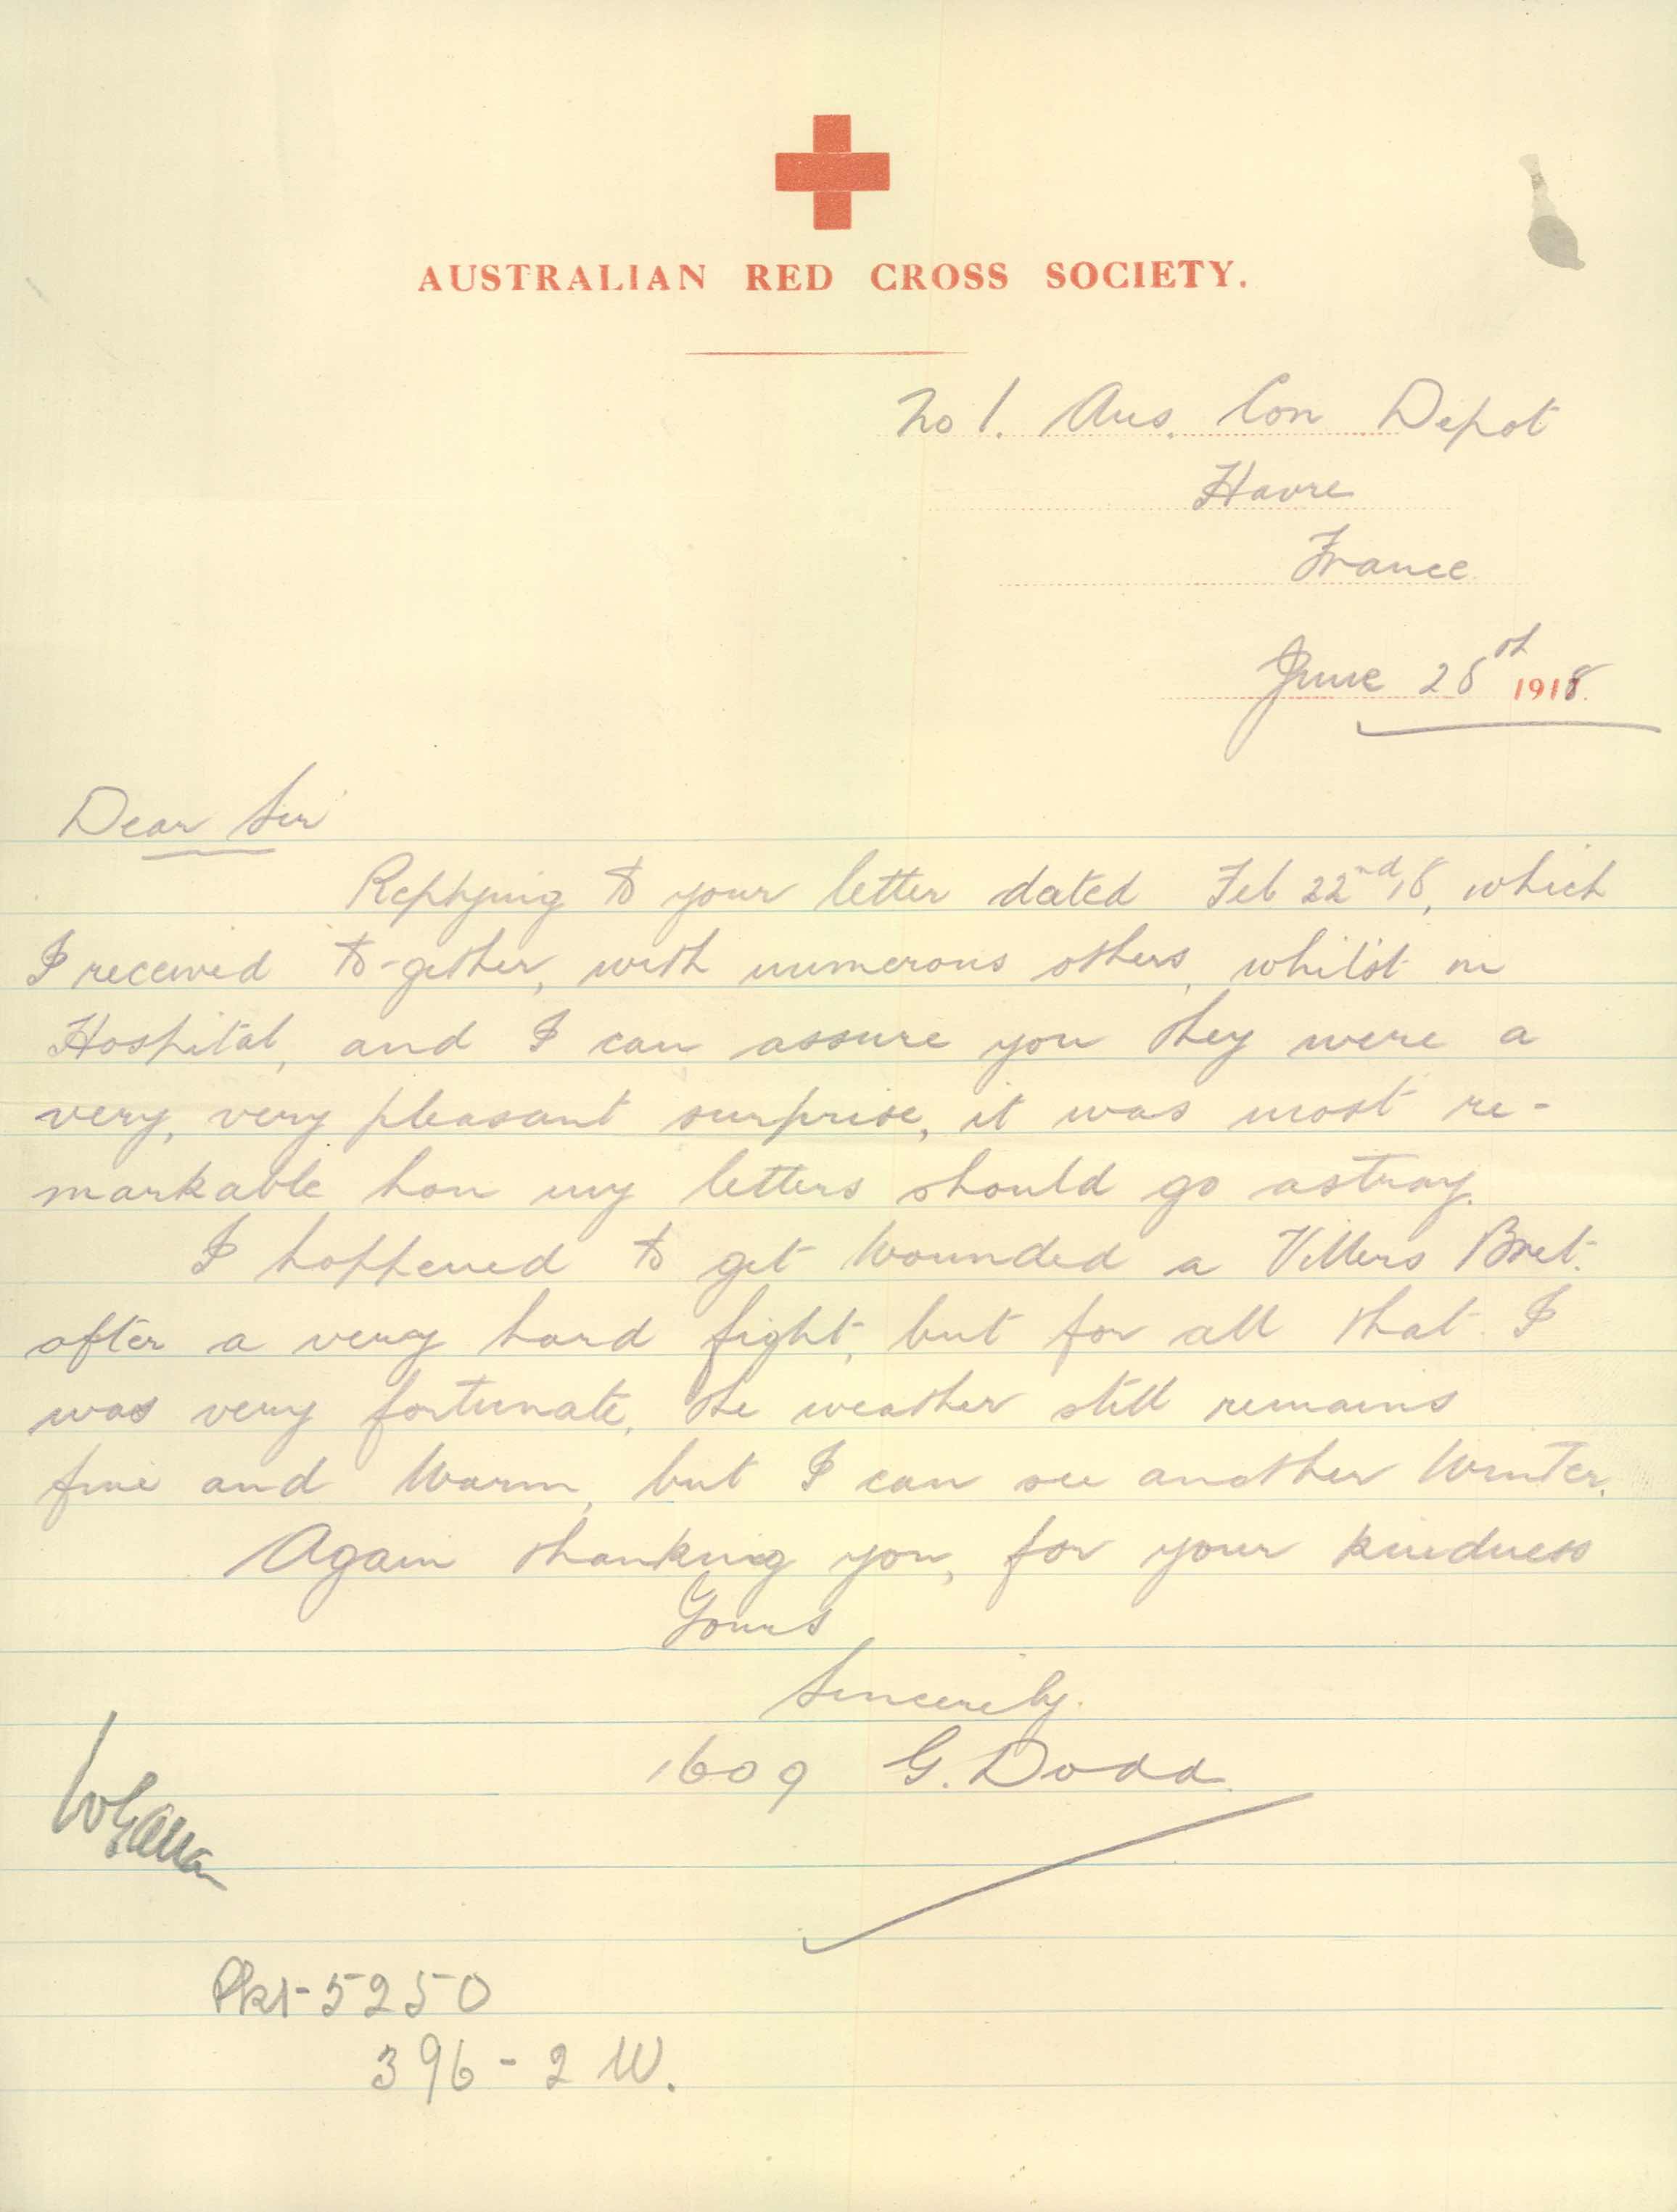 AUSTRALIAN RED CROSS SOCIETY.
No 1. Aus. Con Depot
Havre
France
June 28th 1918.
Dear Sir
Replying to your letter dated Feb 22nd 18, which
I received to-gether, with numerous others, whilst in
Hospital, and I can assure you they were a
very, very pleasant surprise, it was most re-
markable how my letters should go astray.
I happened to get Wounded a Villers Bret.
after a very hard fight, but for all that I
was very fortunate, the weather still remains
fine and Warm, but I can see another Winter.
Again thanking you, for your kindness
Yours
Sincerely.
1609 G. Dodd.
Pkt-5250
396-2 W.